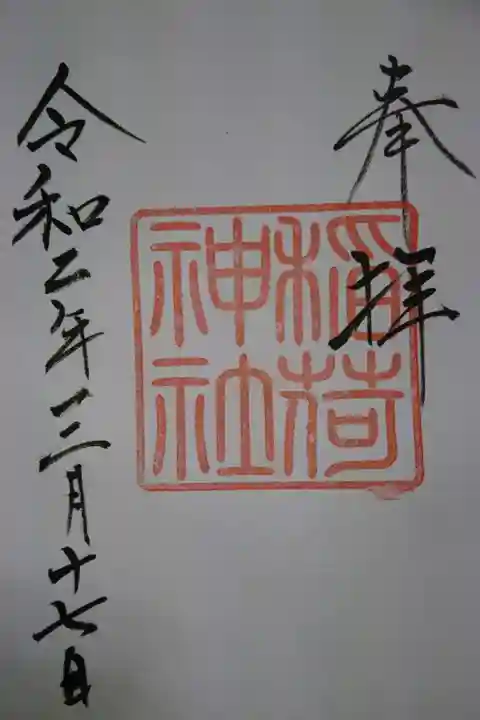 奉拝
稲荷
神社
令和二年三月十七日